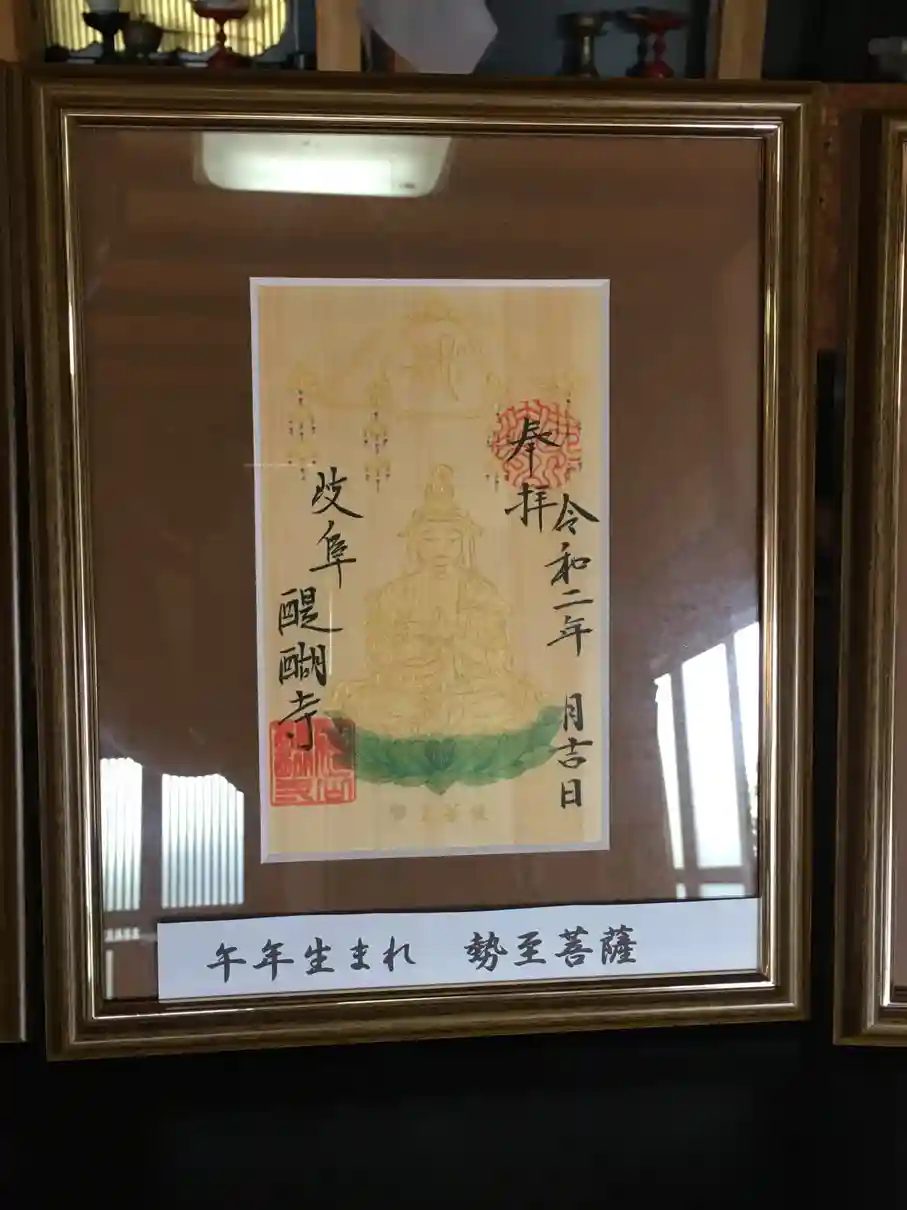 奉拝
令和二年 月吉日
岐阜
醍醐寺
午年生まれ 勢至菩薩